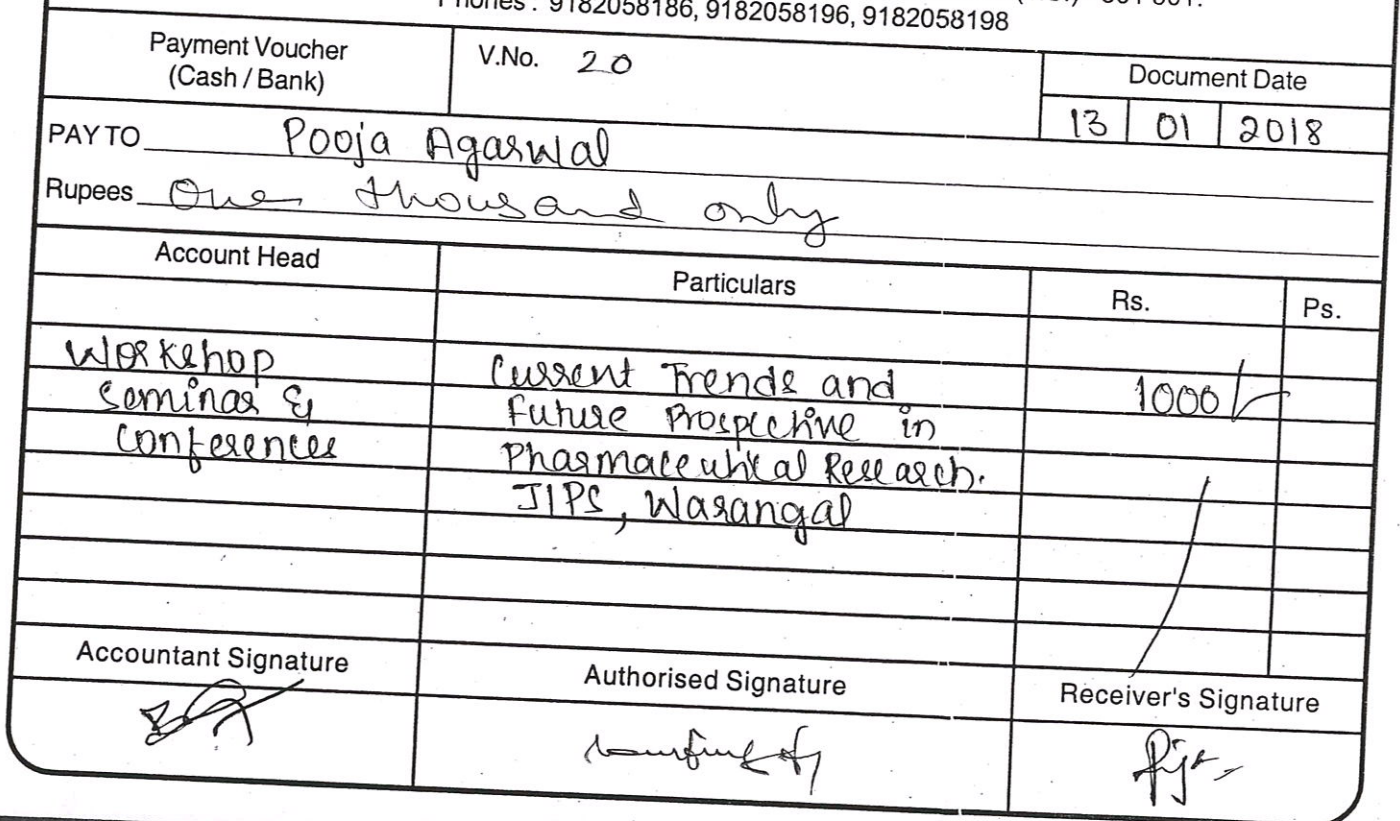 Phones : 9182058186, 9182058196, 9182058198
Payment Voucher
(Cash / Bank)
V.No. 20
Document Date
13 01 2018
PAY TO Pooja Agarwal
Rupees One thousand only
Account Head Particulars Rs. Ps.
Workshop
Seminar &
Conferences
Current Trends and
Future Prospective in
Pharmaceutical Research.
JIPS, Warangal
1000/-
Accountant Signature Authorised Signature Receiver's Signature